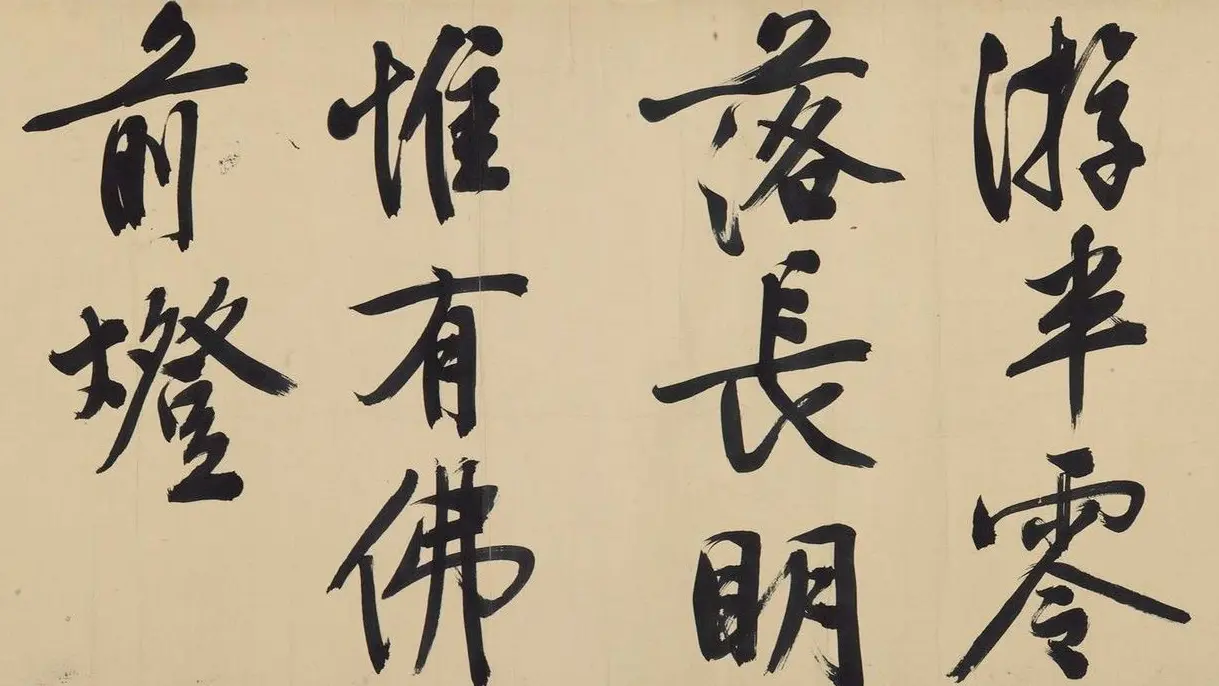 游半零
落長明
惟有佛
前燈